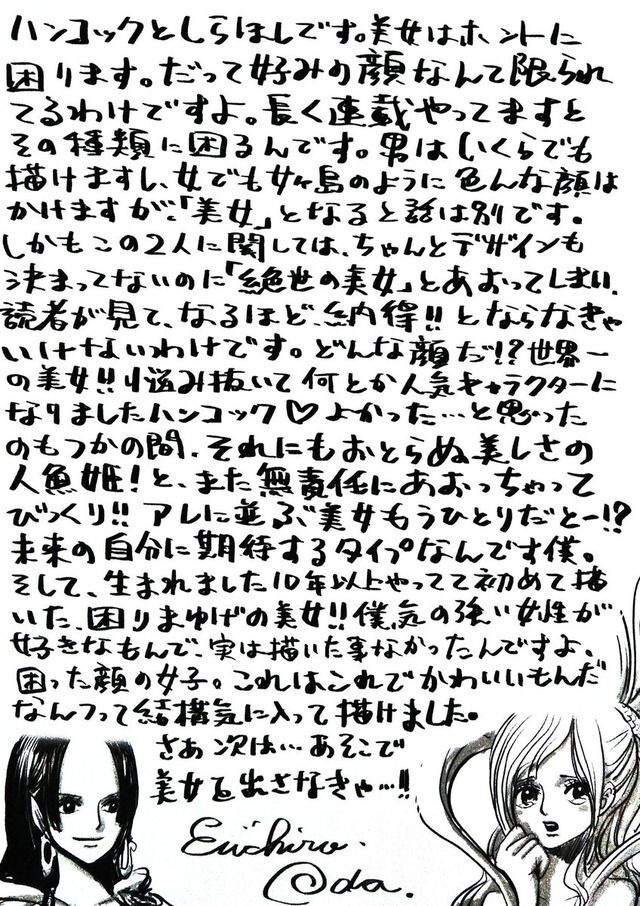 ハンコックとしらほしです。美女はホントに
困ります。だって好みの顔なんて限られ
てるわけですよ。長く連載やってますと
その種類に困るんです。男はいくらでも
描けますし、女でも女ヶ島のように色んな顔は
かけますが、「美女」となると話は別です。
しかもこの2人に関しては、ちゃんとデザインも
決まってないのに「絶世の美女」とあおってしまい、
読者が見て、なるほど、納得!!とならなきゃ
いけないわけです。どんな顔だ!?世界一
の美女!!悩み抜いて何とか人気キャラクターに
なりましたハンコック♡よかった…と思った
のもつかの間、それにもおとらぬ美しさの
人魚姫!と、また無責任にあおっちゃって
びっくり!!アレに並ぶ美女もうひとりだとー!?
未来の自分に期待するタイプなんです僕。
そして、生まれました10年以上やってて初めて描
いた、困りまゆげの美女!!僕気の強い女性が
好きなもんで、実は描いた事なかったんですよ、
困った顔の女子。これはこれでかわいいもんだ
なんつって結構気に入って描けました。
さあ次は…あそこで
美女を出さなきゃ…!!
Eiichiro
Oda.